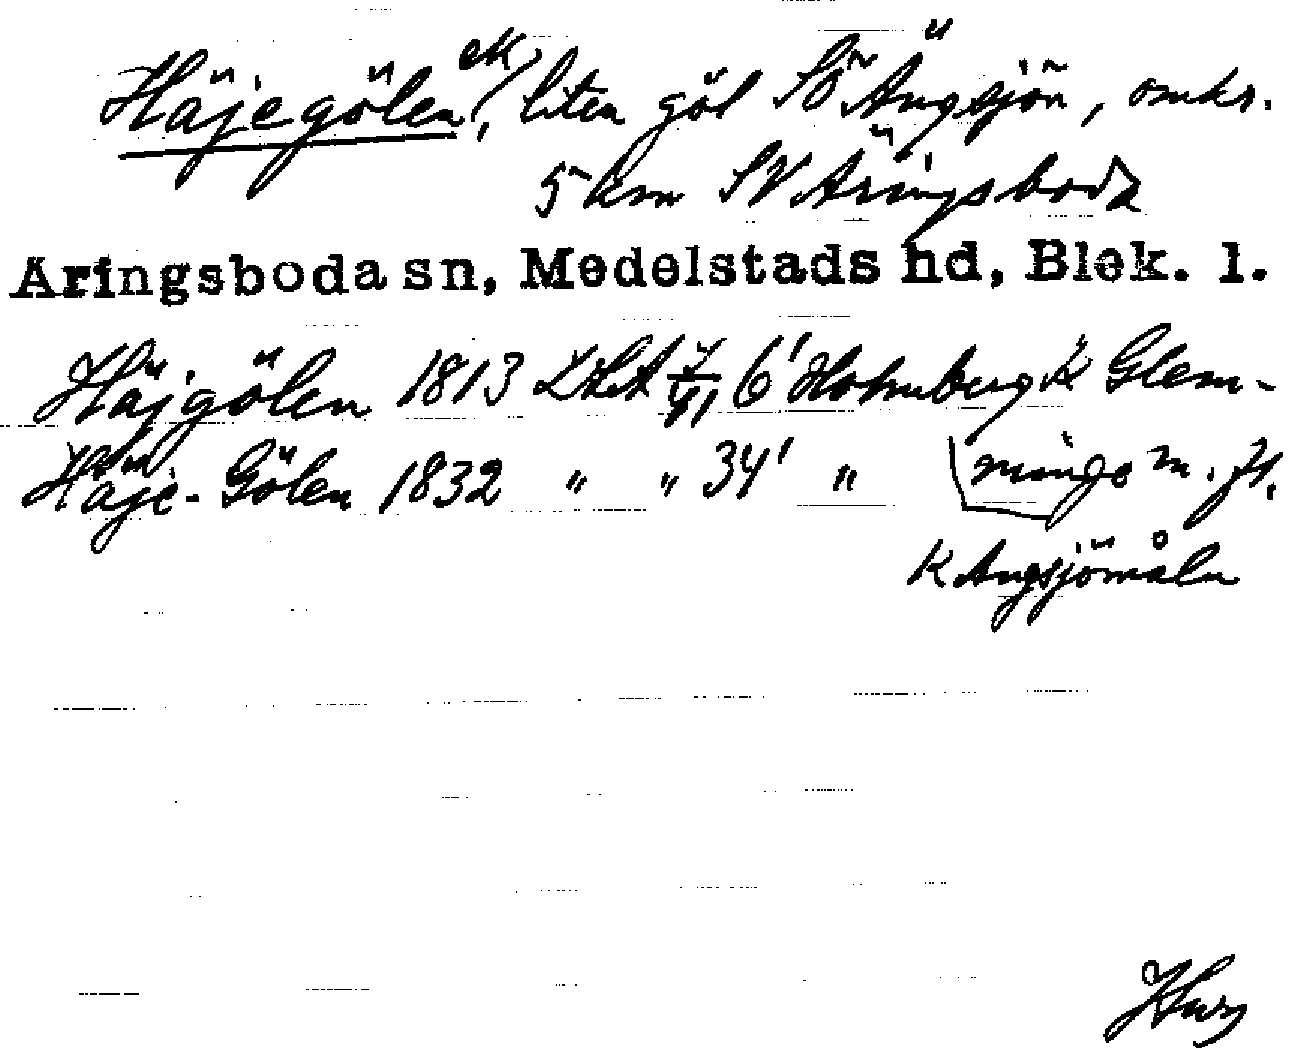 Häjegölen ek, liten göl SÖ Ängsjön, omkr.
5 km SV Äringsboda
Äringsboda sn, Medelstads hd, Blek. l.
Häjgölen 1813 LStA 6' Holmberg K Glem-
Häje-Gölen 1832 " " 34' " minge m. fl.
K Angsjömåla